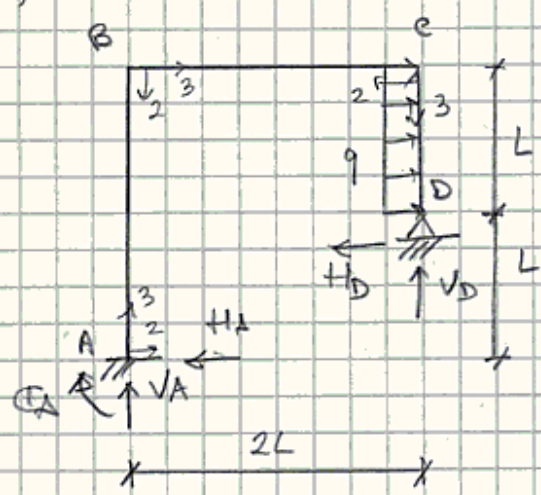 B
C
2
3
2
3
q
L
D
H_D
V_D
L
3
2
H_A
A
V_A
2L